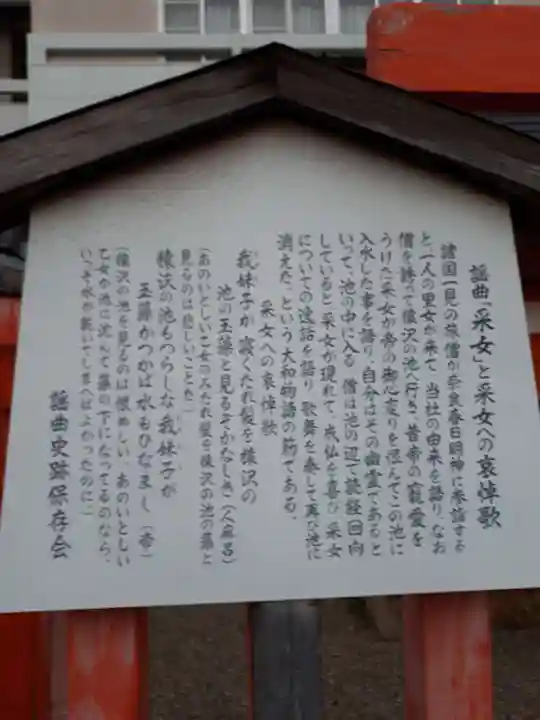 謡曲「采女」と采女への哀悼歌
諸国一見の旅僧が奈良春日明神に参詣する
と、一人の里女が来て、当社の由来を語り、なお
僧を誘って猿沢の池へ行き、昔帝の寵愛を
うけた采女が帝の御心変りを恨んでこの池に
入水した事を語り、自分はその幽霊であると
いって、池の中に入る。僧は池の辺で読経回向
していると采女が現れて、成仏を喜び、采女
についての逸話を語り、歌舞を奏して再び池に
消えた、という大和物語の筋である。
采女への哀悼歌
我妹子が寝くたれ髪を猿沢の
池の玉藻と見るぞかなしき（人麻呂）
（あのいとしい乙女のみだれ髪を猿沢の池の藻と
見るのは悲しいことだ）
猿沢の池もつらしな我妹子が
玉藻かつかば水もひなまし（帝）
（猿沢の池を見るのは恨めしい、あのいとしい
乙女が池に沈んで藻の下になってるのなら、
いっそ水が乾いてしまへばよかったのに）
謡曲史跡保存会